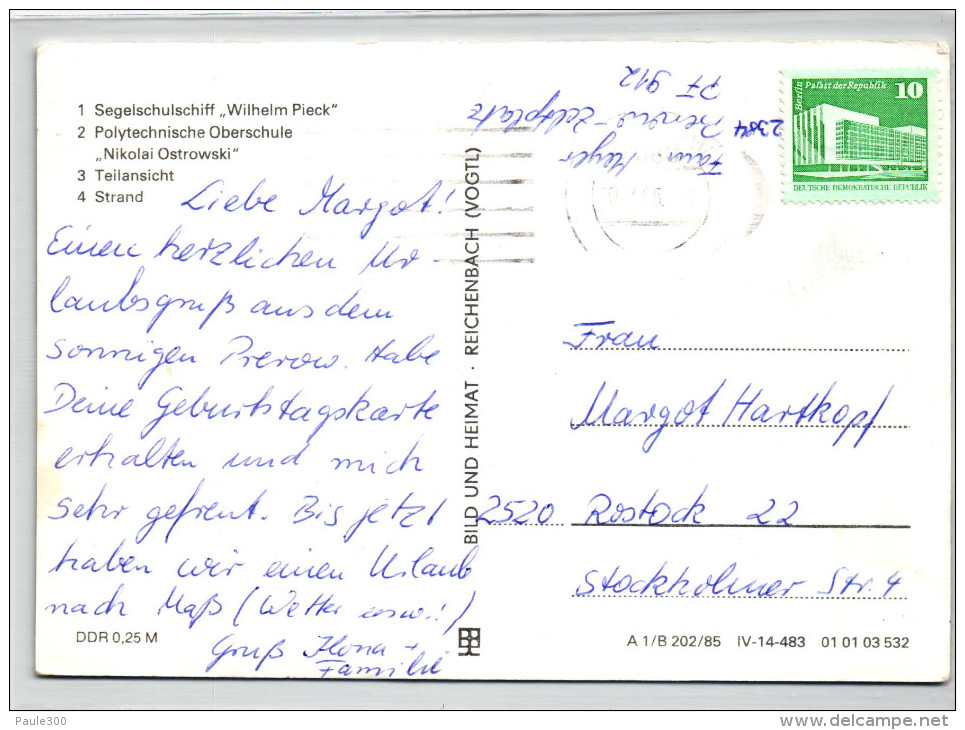 1 Segelschulschiff „Wilhelm Pieck“
2 Polytechnische Oberschule
„Nikolai Ostrowski“
3 Teilansicht
4 Strand
Liebe Margot!
Einen herzlichen Ur-
laubsgruß aus dem
sonnigen Prerow. Habe
Deine Geburtstagskarte
erhalten und mich
sehr gefreut. Bis jetzt
haben wir einen Urlaub
nach Maß (Wetter usw.!)
Gruß Ilona +
Familie
DDR 0,25 M
BILD UND HEIMAT · REICHENBACH (VOGTL)
Fam. Meyer
2384 Prerow-Zeltplatz
PF 912
Berlin Palast der Republik 10
DEUTSCHE DEMOKRATISCHE REPUBLIK
Frau
Margot Hartkopf
2520 Rostock 22
Stockholmer Str. 4
A 1/B 202/85 IV-14-483 01 01 03 532
Paule300
delcampe.net